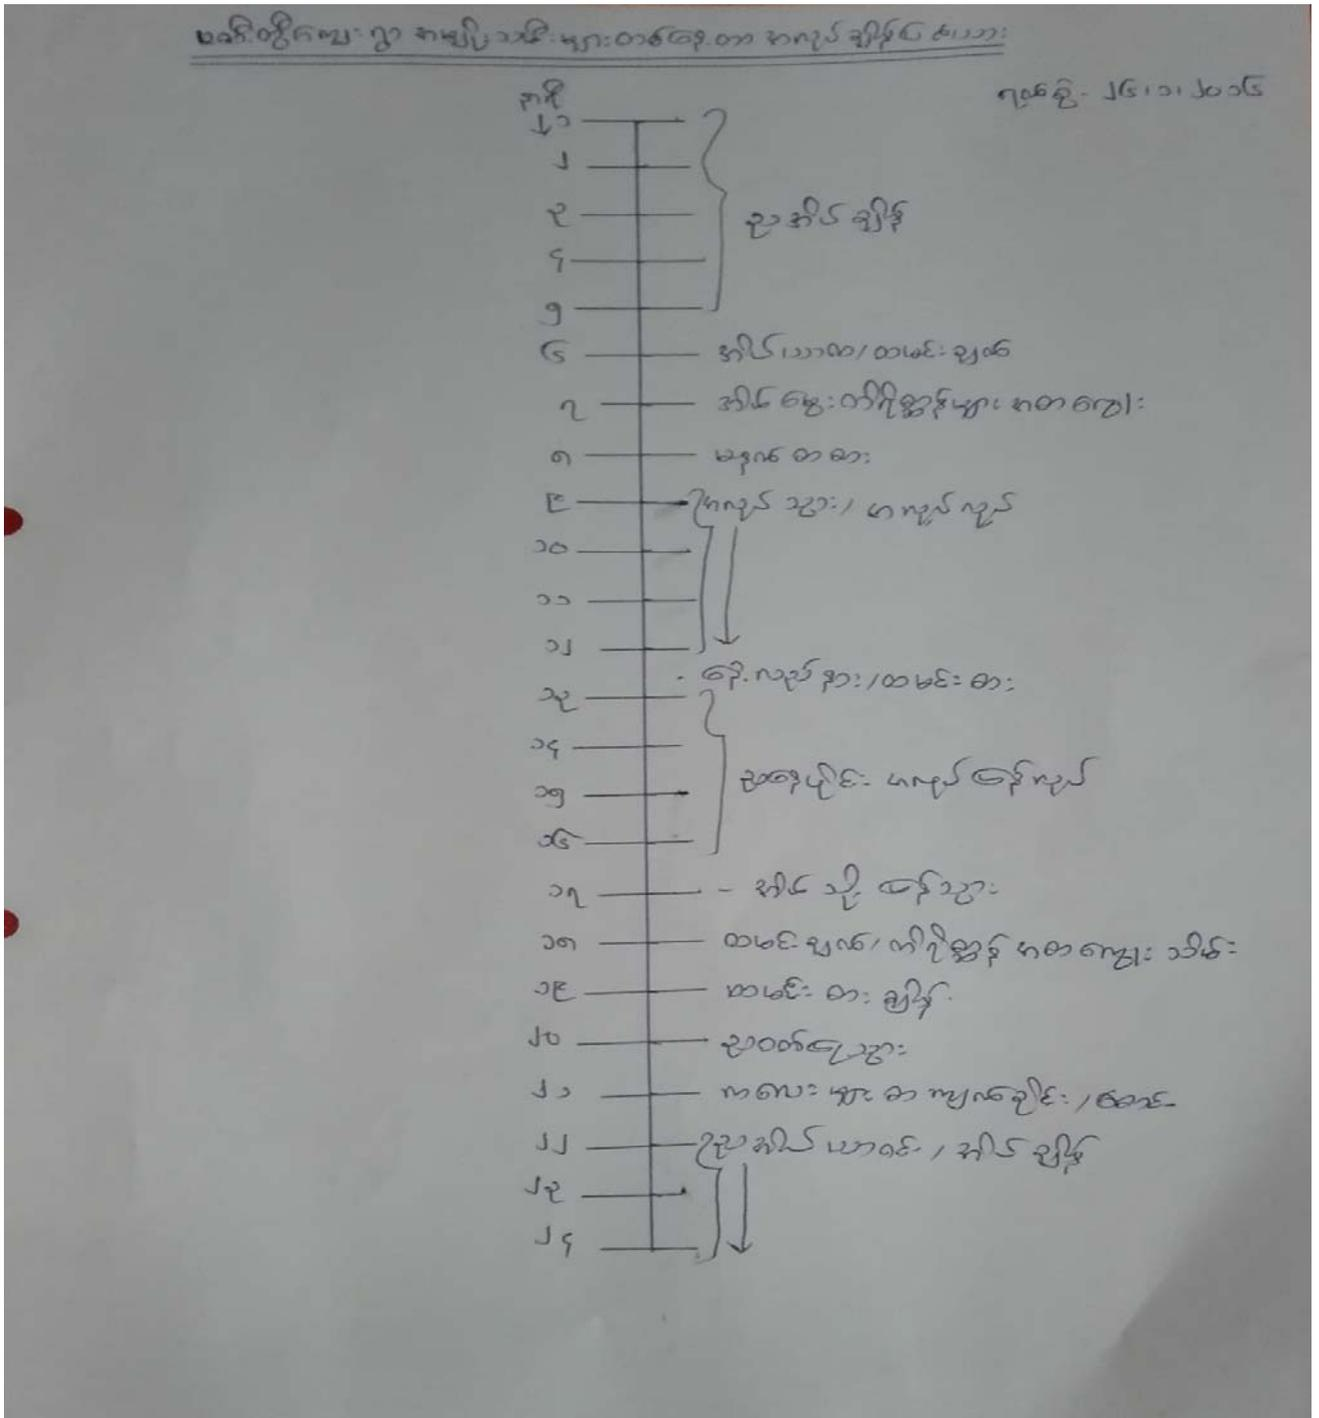 ကျေးရွာ အမျိုးသမီးများ တစ်နေ့တာ အလုပ်ချိန်ပြဇယား
ရက်စွဲ - ၂၆၊၁၊၂၀၁၆
နာရီ
၁
၂
၃
၄
၅
ည အိပ်ချိန်
၆ အိပ်ယာထ/ထမင်းချက်
၇ အိမ်မွေးတိရိစ္ဆာန်များ အစာကျွေး
၈ မနက်စာစား
၉ အလုပ်သွား/ အလုပ်လုပ်
၁၀
၁၁
၁၂
နေ့လည်နား/ထမင်းစား
၁၃
၁၄
၁၅
၁၆
ညနေပိုင်း အလုပ်ပြန်လုပ်
၁၇ - အိမ်သို့ ပြန်သွား
၁၈ ထမင်းချက်/တိရိစ္ဆာန် အစာကျွေး သိမ်း
၁၉ ထမင်းစားချိန်
၂၀ ညဝတ်ပြုသွား
၂၁ ကလေးများ စာကျက်ခိုင်း/
၂၂ ညအိပ်ယာဝင်/အိပ်ချိန်
၂၃
၂၄